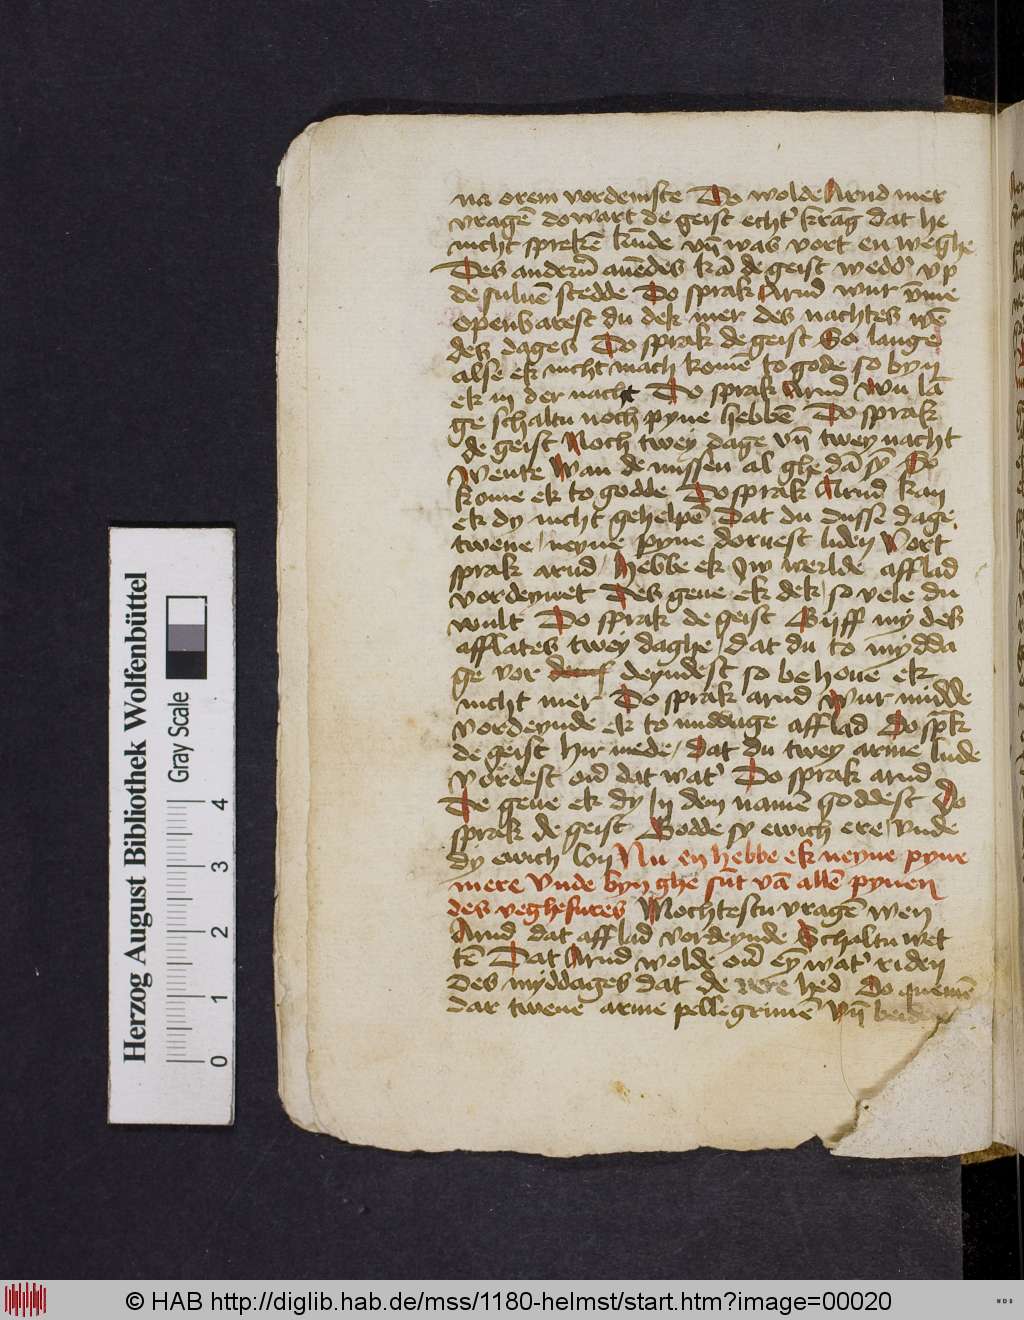 na orem vordeinste Do wolde Arnd mer
vragē do wart de geist echt' krāg dat he
nicht sprekē kūde vn̄ was vort en weghe
Des anderū auēdes kā de geist wedd' vp
de suluē stedde Do sprak Arnd wur vm̄e
openbarest du dek mer des nachtes wē
des dages Do sprak de geist So lange
alse ek nicht mach komē to gode so byn
ek in der nacht Do sprak Arnd Wu lā
ge schaltu noch pyne hebbē Do sprak
de geist Noch twey dage vn̄ twey nacht
Wente Wan de missen al ghe dā sȳ So
kome ek to godde Do sprak Arnd kan
ek dy nicht gehelpē Dat du dusse dage
twene neyne pyne doruest liden Vort
sprak arnd Hebbe ek Jw werlde afflad
vordeynet Des geue ek dek so vele du
wult Do sprak de geist Giff my des
afflates twey daghe dat du to mydda
ge vor deyndest so behoue ek
nicht mer Do sprak arnd Wur midde
vordeynde ek to middage afflad Do sp̄k
de geist hir mede dat du twey arme lude
vordest ou' dat wat' Do sprak arnd
De geue ek dy In dem namē goddest Do
sprak de geist Godde sy ewich ere Vnde
dy ewich lon Nu en hebbe ek neyne pyne
mere Vnde byn ghe sūt vā allē pynen
des veghefures Mochtestu vragē wen
Arnd dat afflad vordeynde Schaltu wet
tē Dat Arnd wolde ou' eȳ wat' riden
Des myddages dat de vere hed Do quemē
dar twene arme pellegrimē vn̄
Herzog August Bibliothek Wolfenbüttel
Gray Scale
0 1 2 3 4
© HAB http://diglib.hab.de/mss/1180-helmst/start.htm?image=00020